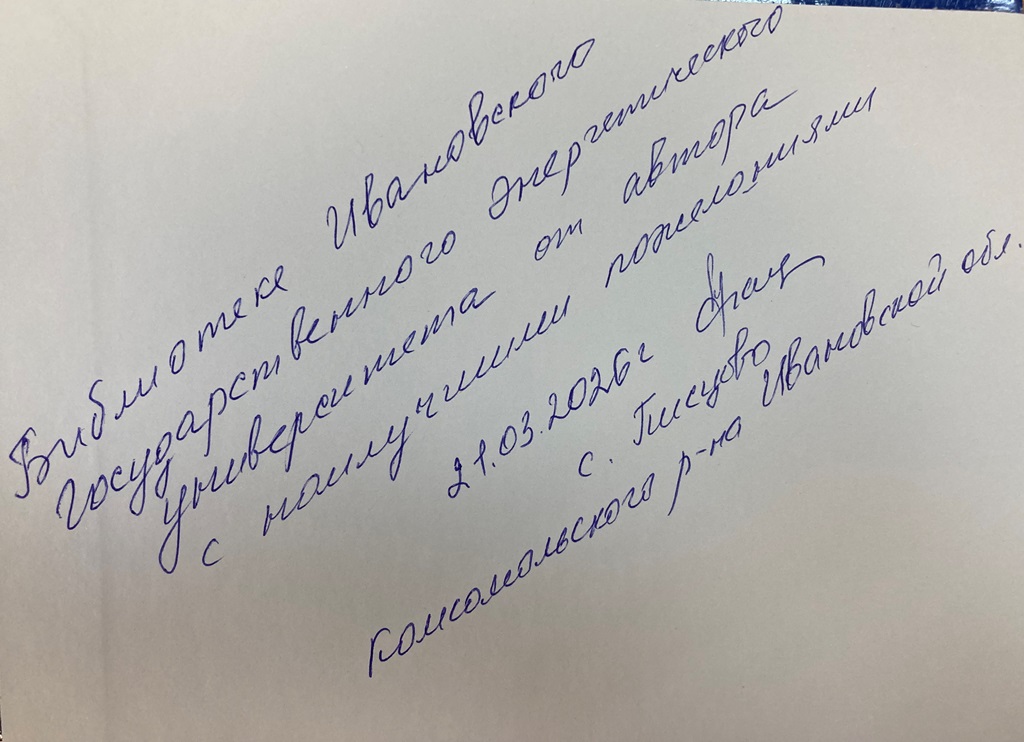 Библиотеке Ивановского
государственного энергетического
университета от автора
с наилучшими пожеланиями
21.03.2026г
с. Писцово
Комсомольского р-на Ивановской обл.